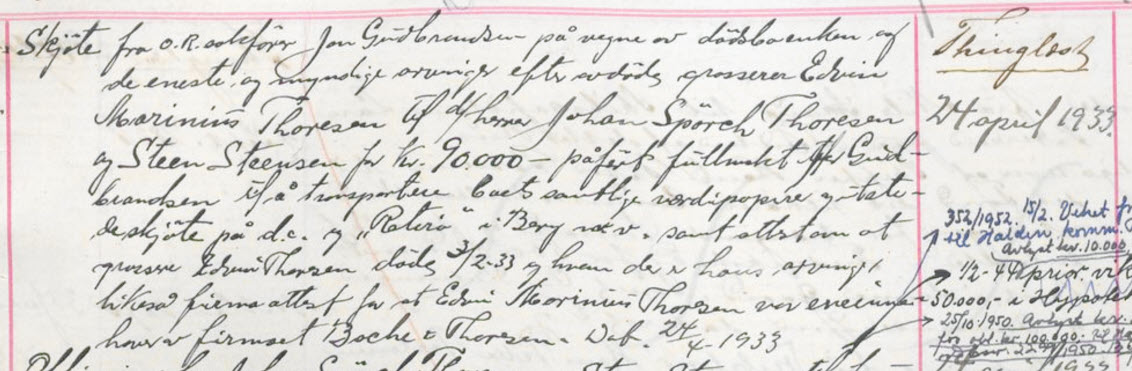 Skjöte fra o.R.sakförer Jon Gudbrandsen på vegne av dödsboenken og
de eneste og myndige arvinger efter avdöde grosserer Edvin
Marinius Thoresen til d/herrer Johan Spörck Thoresen
og Steen Steensen for Kr. 90.000 – påført fullmakt for Gud-
brandsen til å transportere boets samtlige verdipapirer utste-
de skjöte på d.e. og "Retirö" i Berg m.v. samt attest om at
grosserer Edvin Thoresen döde 3/2-33 og hvem der er hans arvinger
likeså firmaattest for at Edvin Marinius Thoresen var eneinne-
haver av firmaet Boche & Thoresen. Dat. 24/4-1933
Thinglest
24 april 1933
352/1952. 15/2. Vehet
til Halden komm.
Avlyst kr. 10.000
1/2-44 prior.vik
50.000,- i Hypotek
25/10.1950. Avlyst kr.
for obl. kr. 100.000.